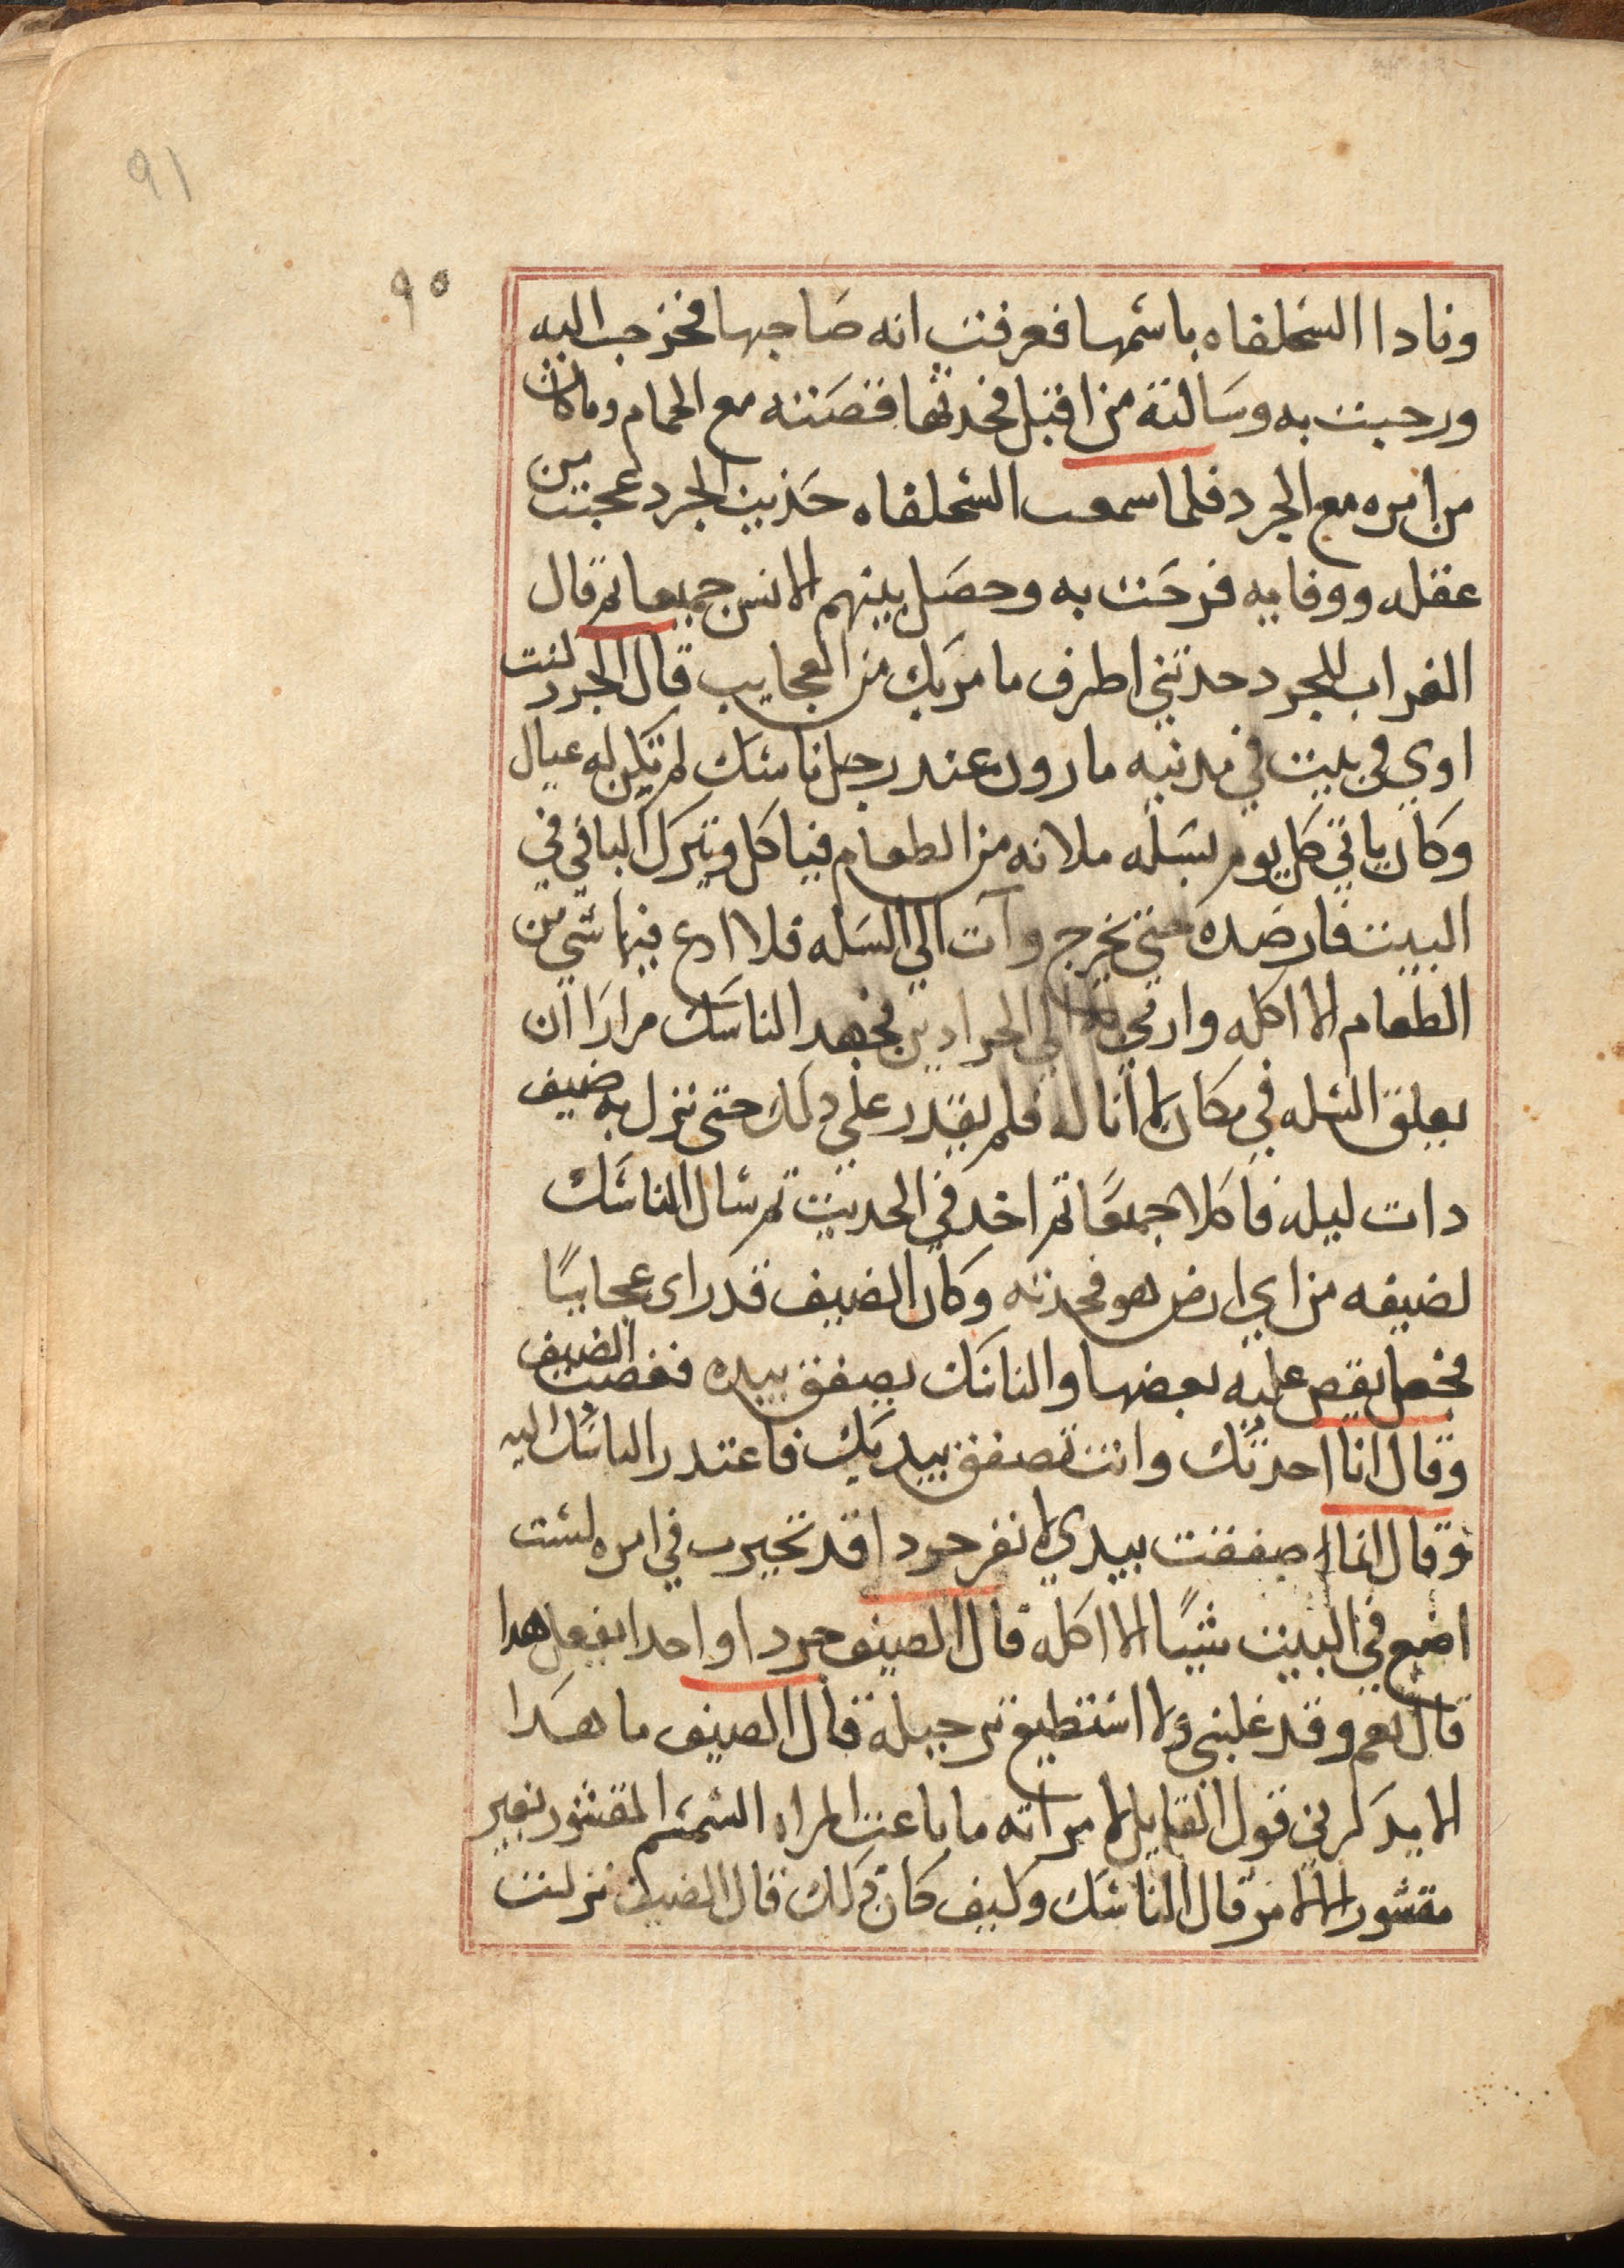 91
٩٥
ونادا السحلفاه باسمها فعرفت انه صاحبها فخرجت اليه
ورحبت به وسالته من اقبل فحدثها قصته مع الحمام وماكان
من امره مع الجرد فلما سمعت السحلفاه حديث الجرد عجبت من
عقله ووفايه فرحت به وحصل بينهم الانس جميعا ثم قال
الغراب للجرد حدثني اطرف ما مر بك من العجايب قال الجرد كنت
اوي في بيت في مدينه مارون عند رجل ناسك لم تكن له عيال
وكان ياتي كل يوم بسله ملانه من الطعام فياكل ويترك الباقي في
البيت فارصده حتى يخرج وآت الي السله فلا ادع فيها شي من
الطعام الا اكله وارمي به الي الجرادين فجهد الناسك مرارا ان
يعلق السله في مكان لا اناله فلم يقدر علي دلك حتى نزل به ضيف
دات ليله فاكلا جميعا ثم اخد في الحديث ثم سال الناسك
لضيفه من اي ارض هو فحدثه وكان الضيف قد راى عجايبا
فجعل يقص عليه بعضها والناسك يصفق بيده فغضب الضيف
وقال انا احدثك وانت تصفق بيديك فاعتدر الناسك اليه
وقال انما اصفقت بيدي لانفر جردا قد تحيرت في امره لست
اضع في البيت شيئا الا اكله قال الضيف جردا واحدا يفعل هدا
قال نعم وقد غلبني ولا استطيع له حيله قال الضيف ما هدا
الا يدكرني قول القايل لامراته ما باعت المراه السمسم المقشور بغير
مقشور الا لامر قال الناسك وكيف كان دلك قال الضيف نزلت